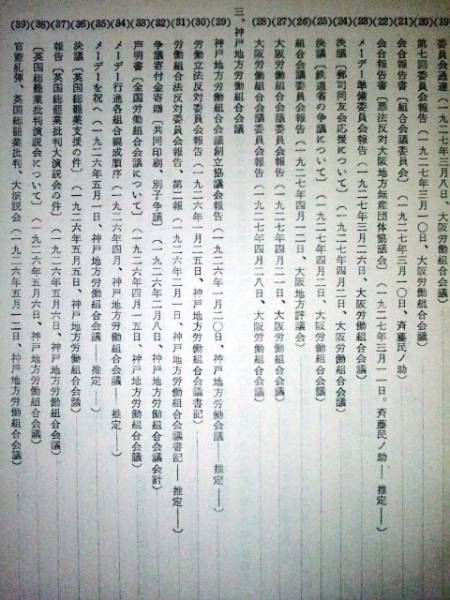 (19) 委員会通達(一九二七年三月八日、大阪労働組合会議)
(20) 第七回委員会報告(一九二七年三月一〇日、大阪労働組合会議)
(21) 会合報告書〔組合会議委員会〕(一九二七年三月一〇日、斉藤民ノ助)
(22) 会合報告書〔悪法反対大阪地方無産団体協議会〕(一九二七年三月一一日。斉藤民ノ助―推定―)
(23) メーデー準備委員会報告(一九二七年三月二六日、大阪労働組合会議)
(24) 決議〔郵司同友会応援について〕(一九二七年四月二日、大阪労働組合会議)
(25) 決議〔鉄道省の争議について〕(一九二七年四月二日、大阪労働組合会議)
(26) 組合会議委員会報告(一九二七年四月一二日、大阪地方評議会)
(27) 大阪労働組合会議委員会報告(一九二七年四月二一日、大阪労働組合会議)
(28) 大阪労働組合会議委員会報告(一九二七年四月二八日、大阪労働組合会議)
三、神戸地方労働組合会議
(29) 神戸地方労働組合会議創立協議会報告(一九二六年一月二〇日、神戸地方労働会議―推定―)
(30) 労働立法反対委員会報告(一九二六年一月二五日、神戸地方労働組合会議書記)
(31) 労働組合法反対委員会報告、第二報(一九二六年二月一日、神戸地方労働組合会議書記―推定―)
(32) 争議寄付金寄贈〔共同印刷、別子争議〕(一九二六年二月八日、神戸地方労働組合会議会計)
(33) 声明書〔全国労働組合会議について〕(一九二六年四月一五日、神戸地方労働組合会議)
(34) メーデー行進各組合編成順序(一九二六年四月、神戸地方労働組合会議―推定―)
(35) メーデーを祝う(一九二六年五月一日、神戸地方労働組合会議―推定―)
(36) 決議〔英国総罷業支援の件〕(一九二六年五月五日、神戸地方労働組合会議)
(37) 報告〔英国総罷業批判大演説会の件〕(一九二六年五月六日、神戸地方労働組合会議)
(38) 〔英国総罷業批判演説会について〕(一九二六年五月六日、神戸地方労働組合会議)
(39) 官憲糺弾、英国総罷業批判、大演説会(一九二六年五月一二日、神戸地方労働組合会議)